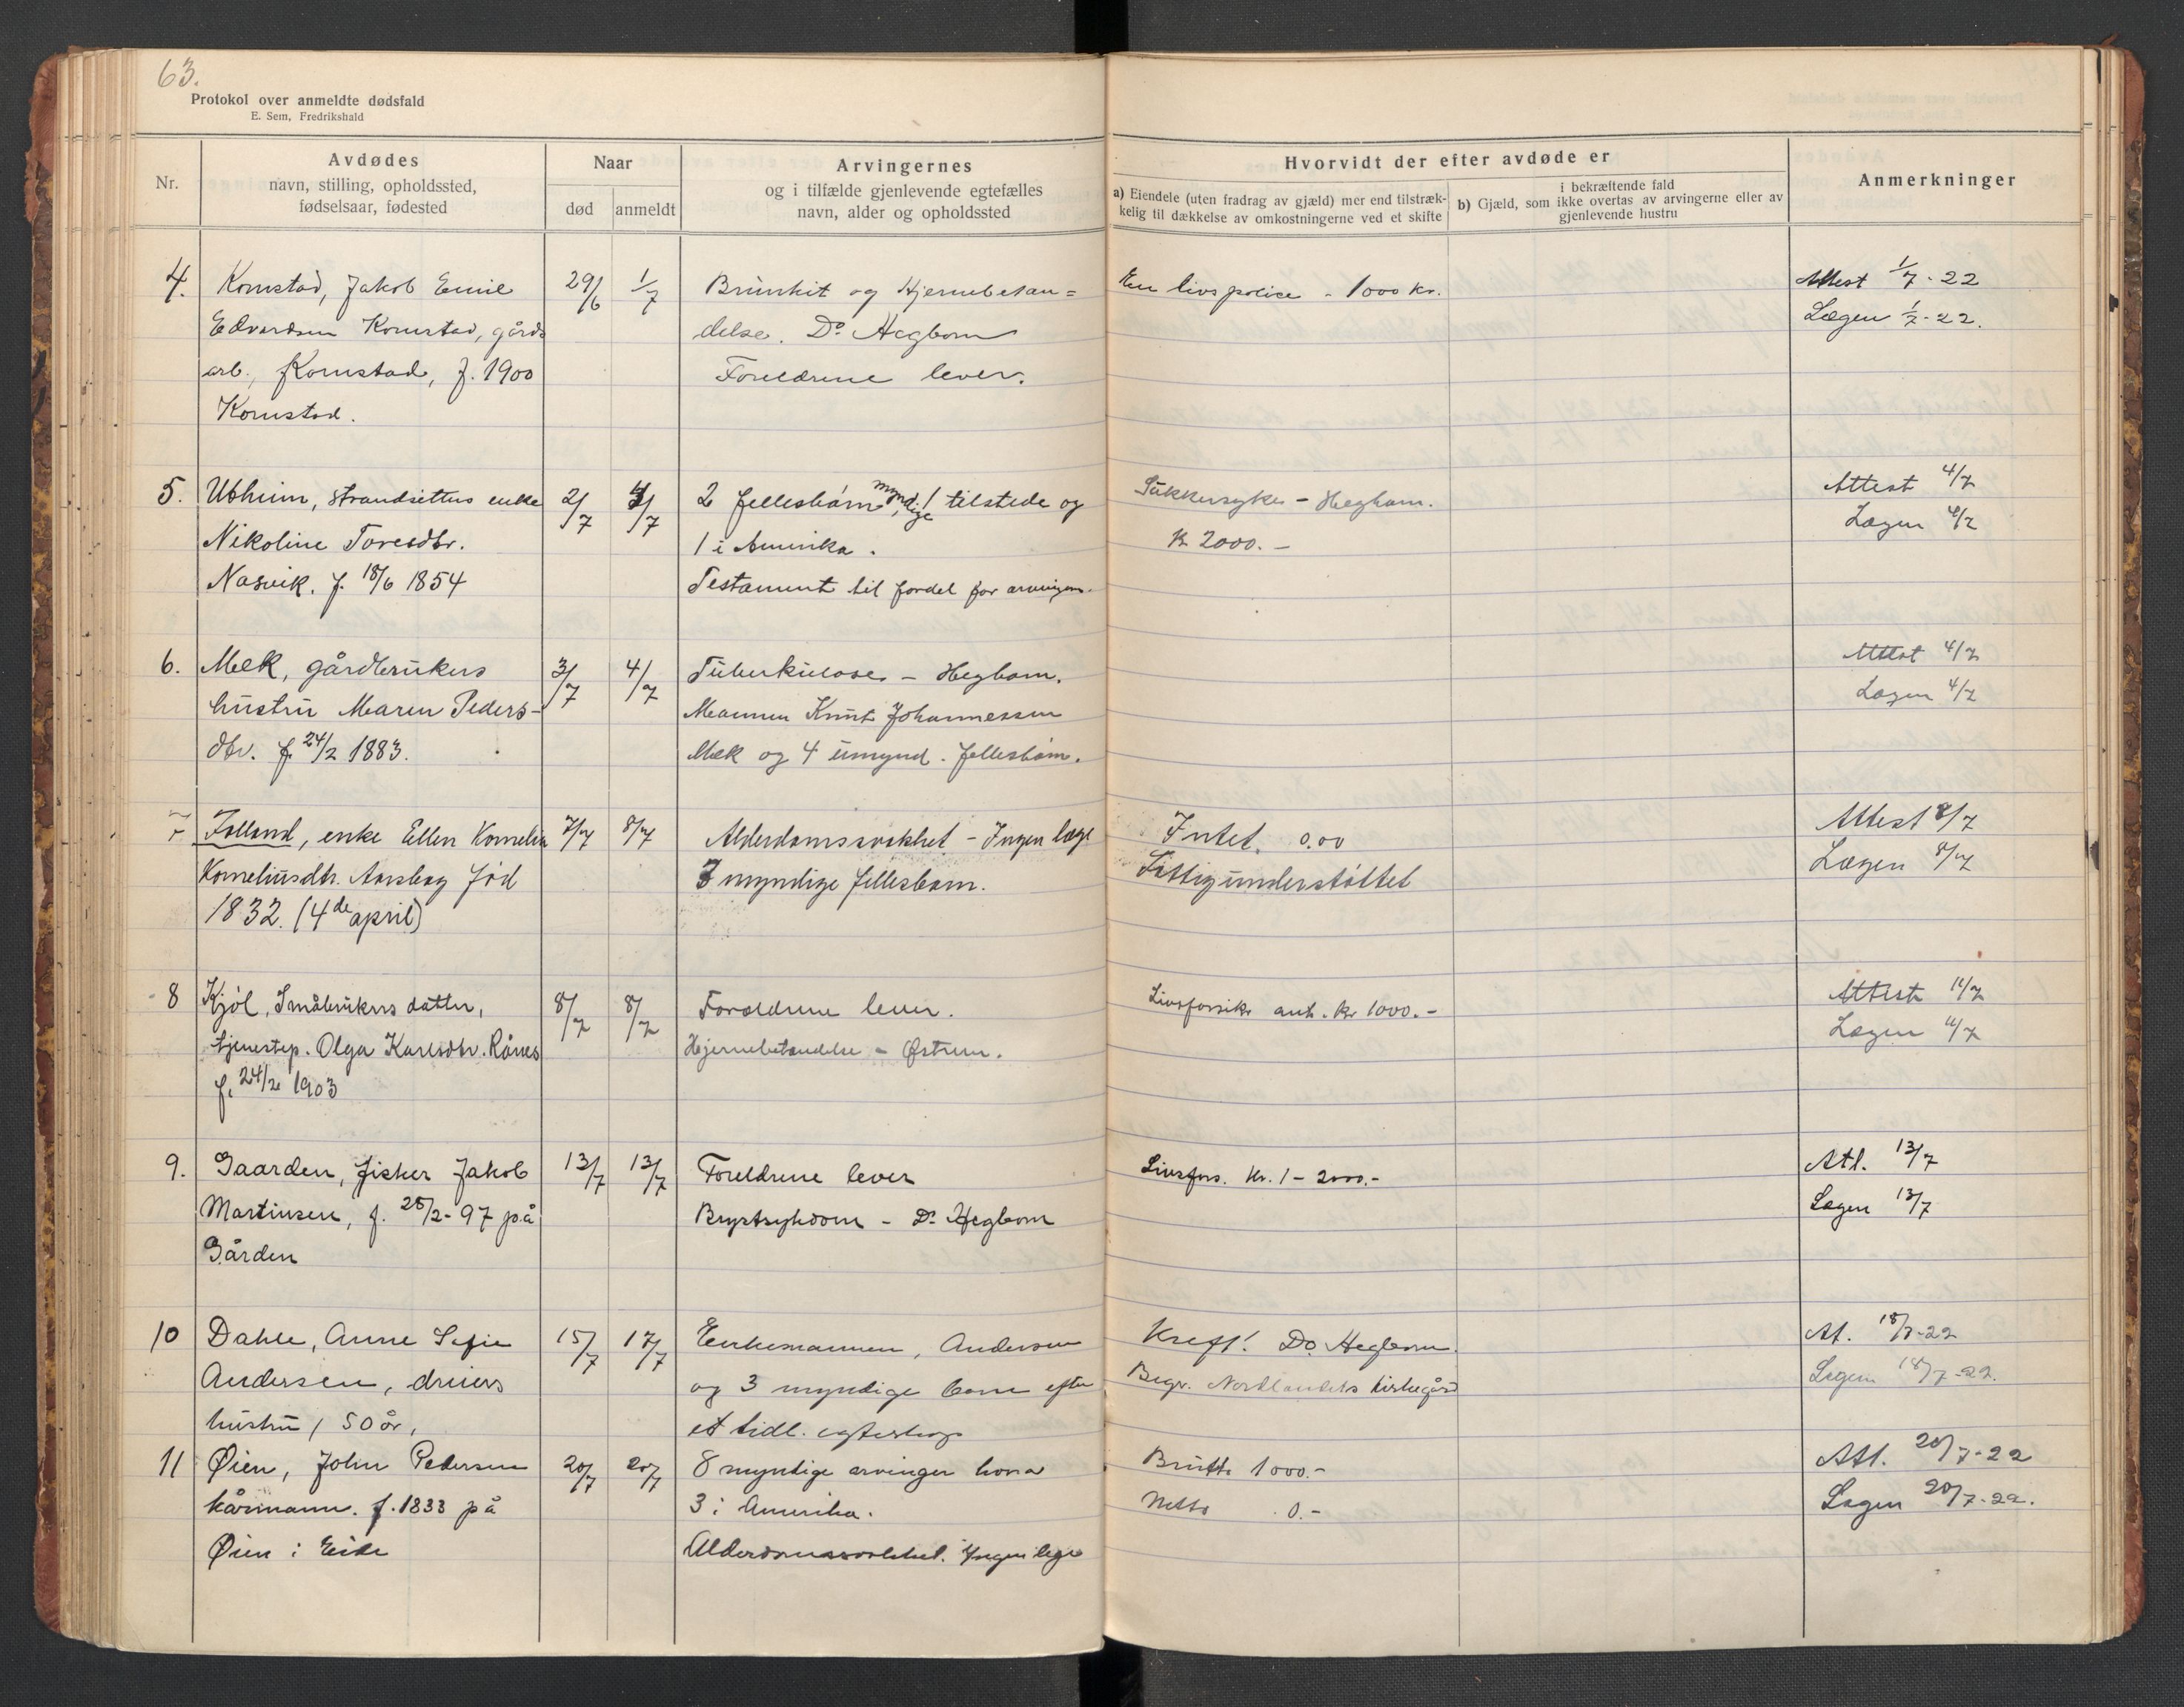 63.
Protokol over anmeldte dødsfald
E. Sem, Fredrikshald
Nr.
Avdødes
navn, stilling, opholdssted,
fødselsaar, fødested
Naar
død
anmeldt
Arvingernes
og i tilfælde gjenlevende egtefælles
navn, alder og opholdssted
Hvorvidt der efter avdøde er
a) Eiendele (uten fradrag av gjæld) mer end tilstræk-
kelig til dækkelse av omkostningerne ved et skifte
i bekræftende fald
b) Gjæld, som ikke overtas av arvingerne eller av
gjenlevende hustru
Anmerkninger
4. Kornstad, Jakob Emil 29/6 1/7 Brunkit og Hjernebetæn= En livspolice - 1000 kr. Attest 1/7-22
Edvardsen Kornstad, gårds delse. Dr Hegbom Lægen 1/7-22.
arb., Kornstad, f. 1900 Foreldrene lever.
Kornstad.
5. Ubheim, strandsitters enke 2/7 4/7 2 fellesbarn myndige, 1 tilstede og Sukkersyke - Hegbom. Attest 4/7
Nikoline Toresdtr. 1 i Amerika. Kr 2000.- Lægen 4/7
Nasvik. f. 18/6 1854 Testament til fordel for arvingene.
6. Mek, gårdbrukers 3/7 4/7 Tuberkulose - Hegbom. Attest 4/7
hustru Maren Peders- Mannen Knut Johannessen Lægen 4/7
dtr. f. 24/2 1883. Mek og 4 umynd. fellesbarn.
7 Folland, enke Ellen Kornelia 7/7 8/7 Alderdomssvakhet - Ingen læge Intet. 0.00 Attest 8/7
Korneliusdtr. Aarsbog fød 3 myndige fellesbarn. Fattigunderstøttet Lægen 8/7
1832. (4de april)
8 Kjøl, Småbrukers datter, 8/7 8/7 Foreldrene lever. Livsforsikr ant. kr 1000.- Attest 11/7
tjenestep. Olga Karlsdtr. Rånes Hjernebetændelse - Østrem. Lægen 11/7
f. 24/2 1903
9. Gaarden, fisker Jakob 13/7 13/7 Foreldrene lever Livsfors. kr. 1-2000.- Att. 13/7
Martinsen, f. 25/2-97 på Brystsykdom - Dr Hegbom Lægen 13/7
Gården
10 Dahle, Anne Sofie 15/7 17/7 Enkemannen, Andersen Kreft. Dr. Hegbom. At. 18/7-22
Andersen, hustru, 50 år, og 3 myndige barn efter Begr. Nordlandets kirkegård Lægen 18/7-22.
et tidl. egteskap
11 Øien, John Pedersen 20/7 20/7 8 myndige arvinger hvorav Brutto 1000.- Att. 20/7-22
kårmann. f. 1833 på 3 i Amerika. Netto 0.- Lægen 20/7-22.
Øien i Eide Alderdomssvakhet. Ingen læge